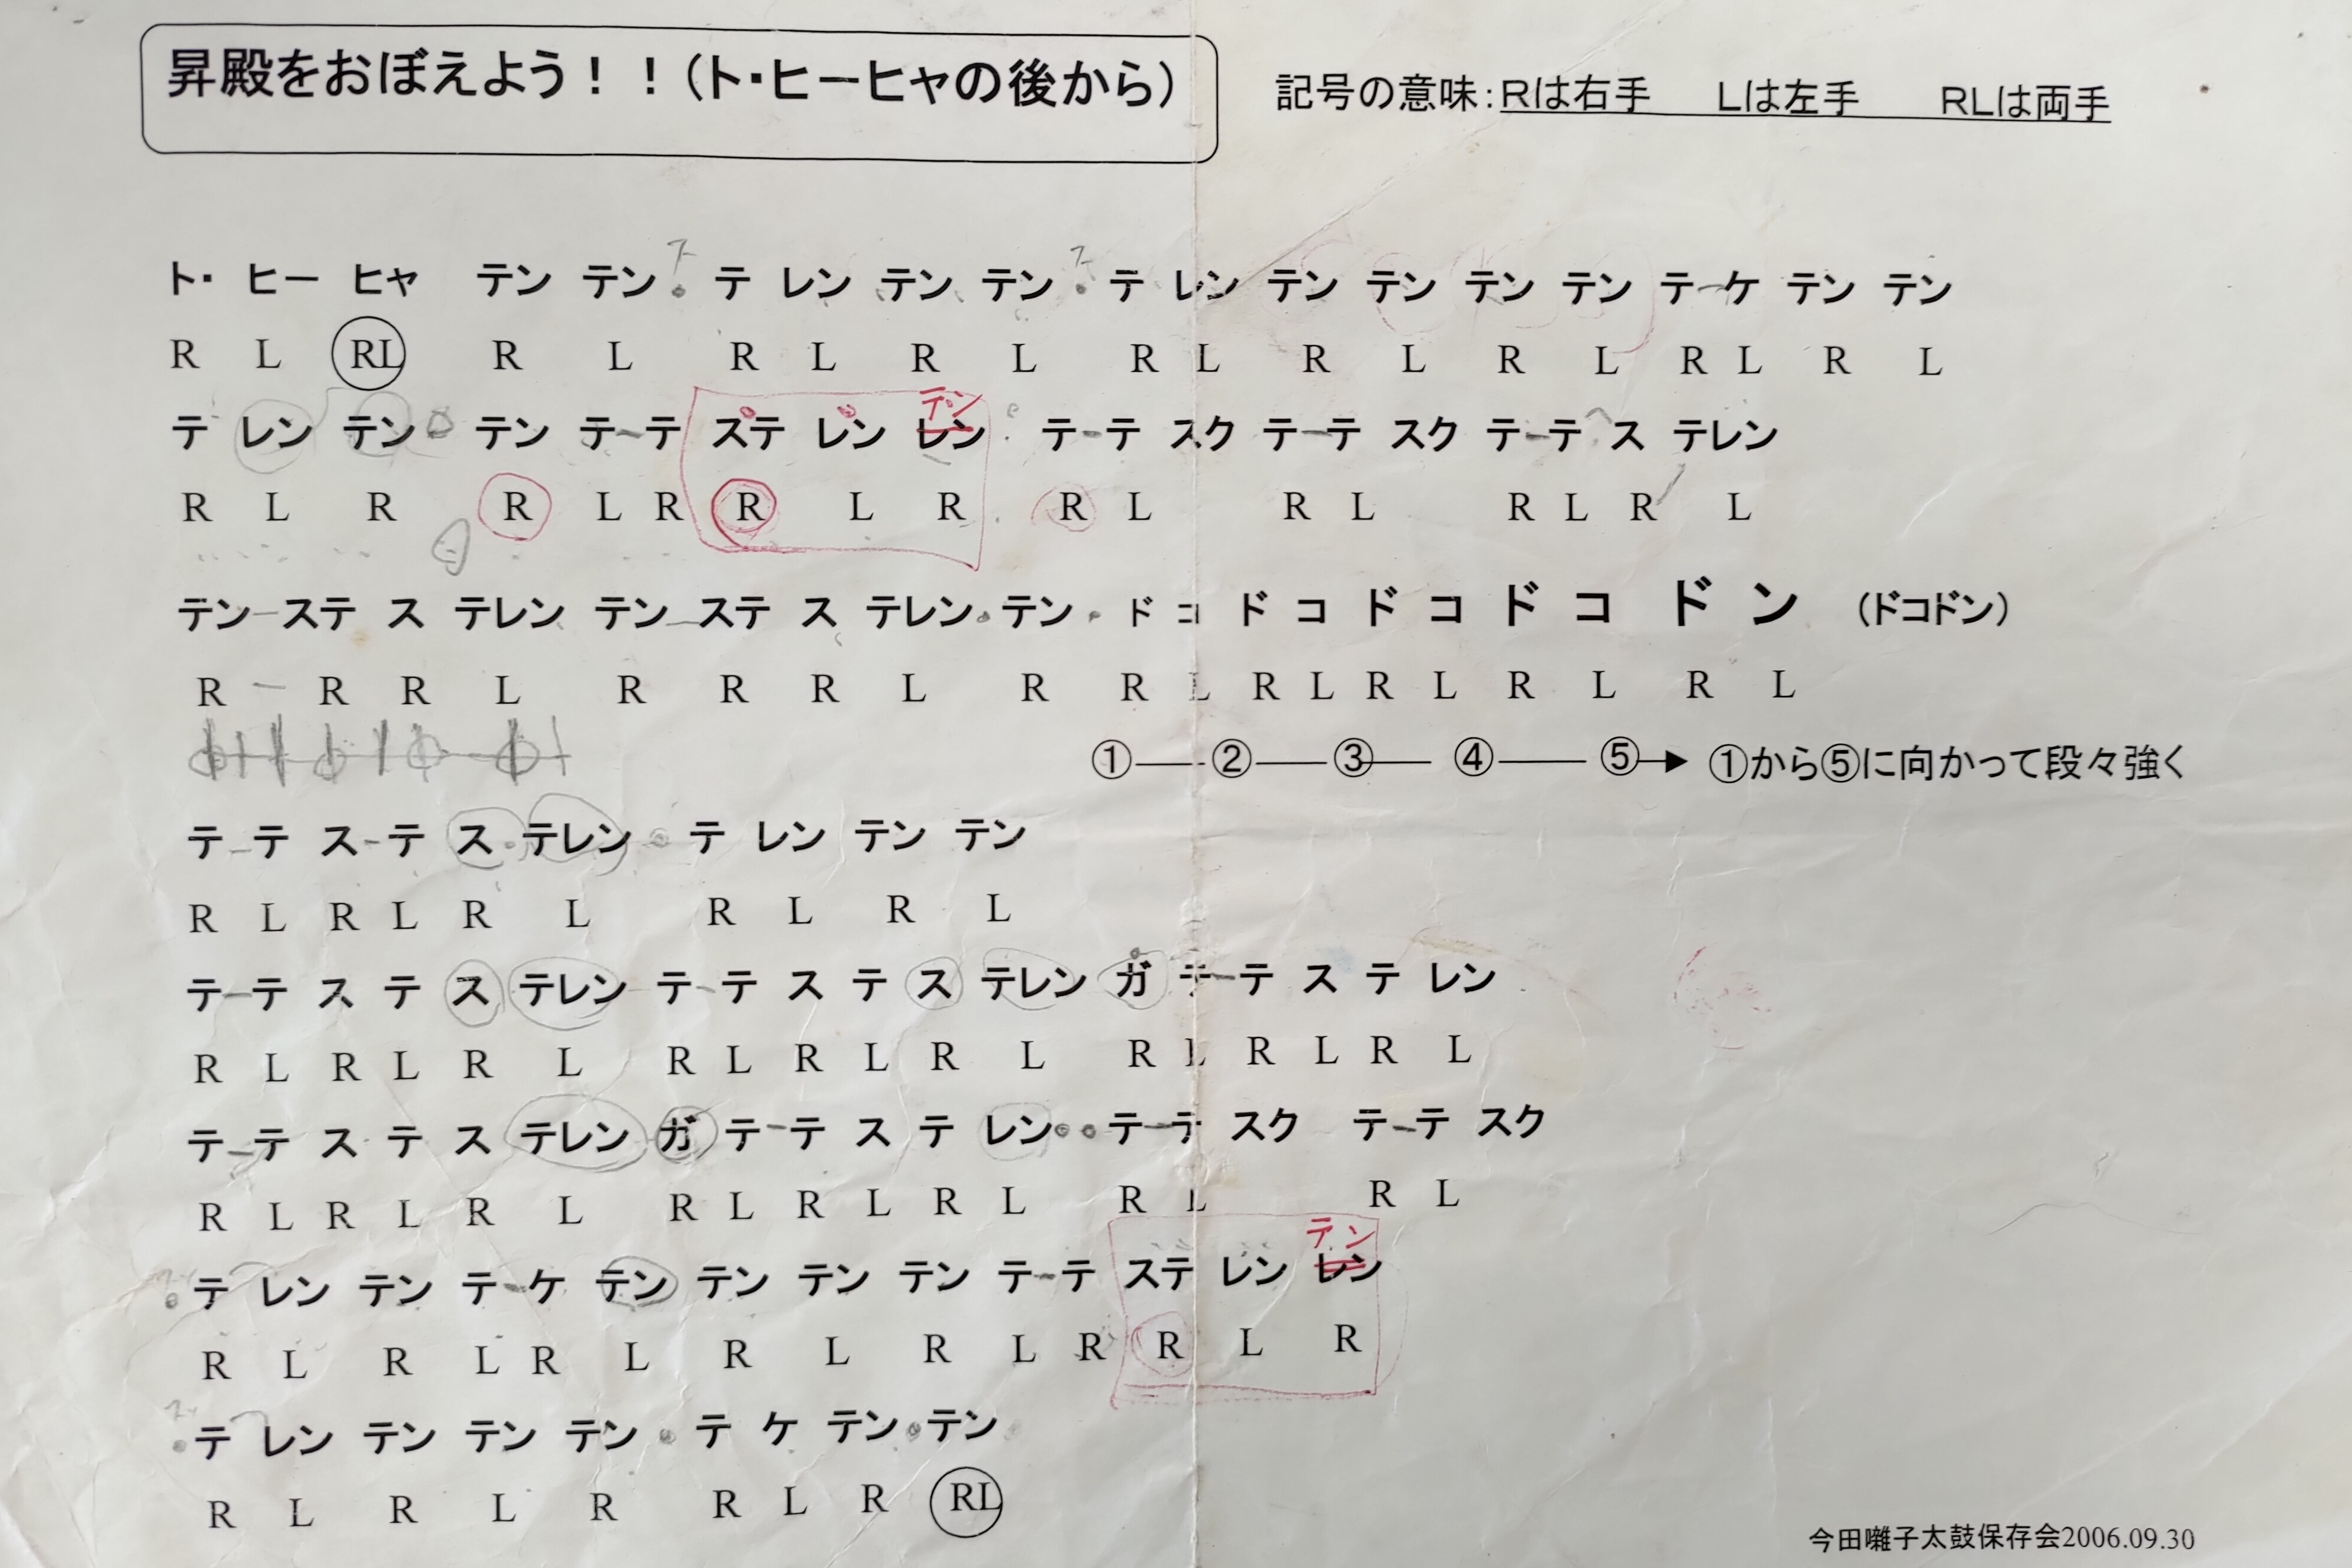 昇殿をおぼえよう！！（ト・ヒーヒャの後から）
記号の意味：Rは右手　Lは左手　RLは両手
ト・ ヒー ヒャ テン テン テ レン テン テン テ レン テン テン テン テン テ ケ テン テン
R L RL R L R L R L R L R L R L R L R L
テン
テ レン テン テン テ テ ステ レン レン テ テ スク テ テ スク テ テ ス テレン
R L R R L R R L R R L R L R L R L
テン ステ ス テレン テン ステ ス テレン テン ド コ ド コ ド コ ド コ ド ン （ドコドン）
R R R L R R R L R R L R L R L R L R L
① ② ③ ④ ⑤ ①から⑤に向かって段々強く
テ テ ス テ ス テレン テ レン テン テン
R L R L R L R L R L
テ テ ス テ ス テレン テ テ ス テ ス テレン ガ テ テ ス テ レン
R L R L R L R L R L R L R L R L R L
テ テ ス テ ス テレン ガ テ テ ス テ レン テ テ スク テ テ スク
R L R L R L R L R L R L R L R L
テン
テ レン テン テ ケ テン テン テン テン テ テ ステ レン レン
R L R L R L R L R L R R L R
テ レン テン テン テン テ ケ テン テン
R L R L R R L R RL
今田囃子太鼓保存会2006.09.30